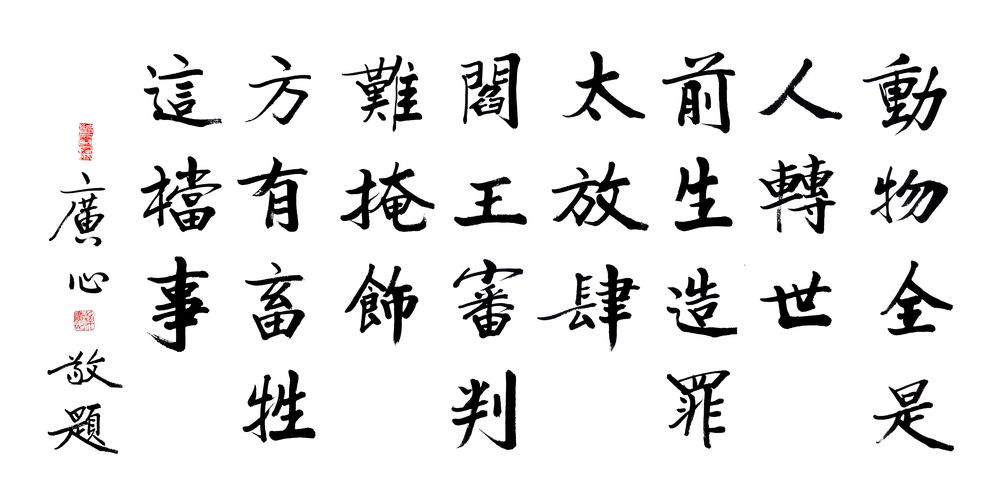 動物全是
人轉世
前生造罪
太放肆
閻王審判
難掩飾
方有畜牲
這檔事
廣心
敬題